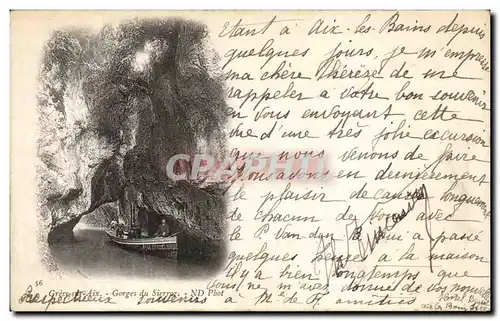 Etant à Aix-les-Bains depuis
quelques jours, je m'empresse
ma chère Thérèse de me
rappeler à votre bon souvenir
en vous envoyant cette
vue d'une très jolie excursion
que nous venons de faire
avons en dernièrement
le plaisir de causer longuement
de chacun de vous avec
le P. Van den qui a passé
quelques à la maison
Il y a bien longtemps que
vous ne m'avez donné de vos nouvelles
Respectueux souvenirs à Mme de amitiés
56 Grésy-sur-Aix. - Gorges du Sierroz. - ND Phot
CARTHI